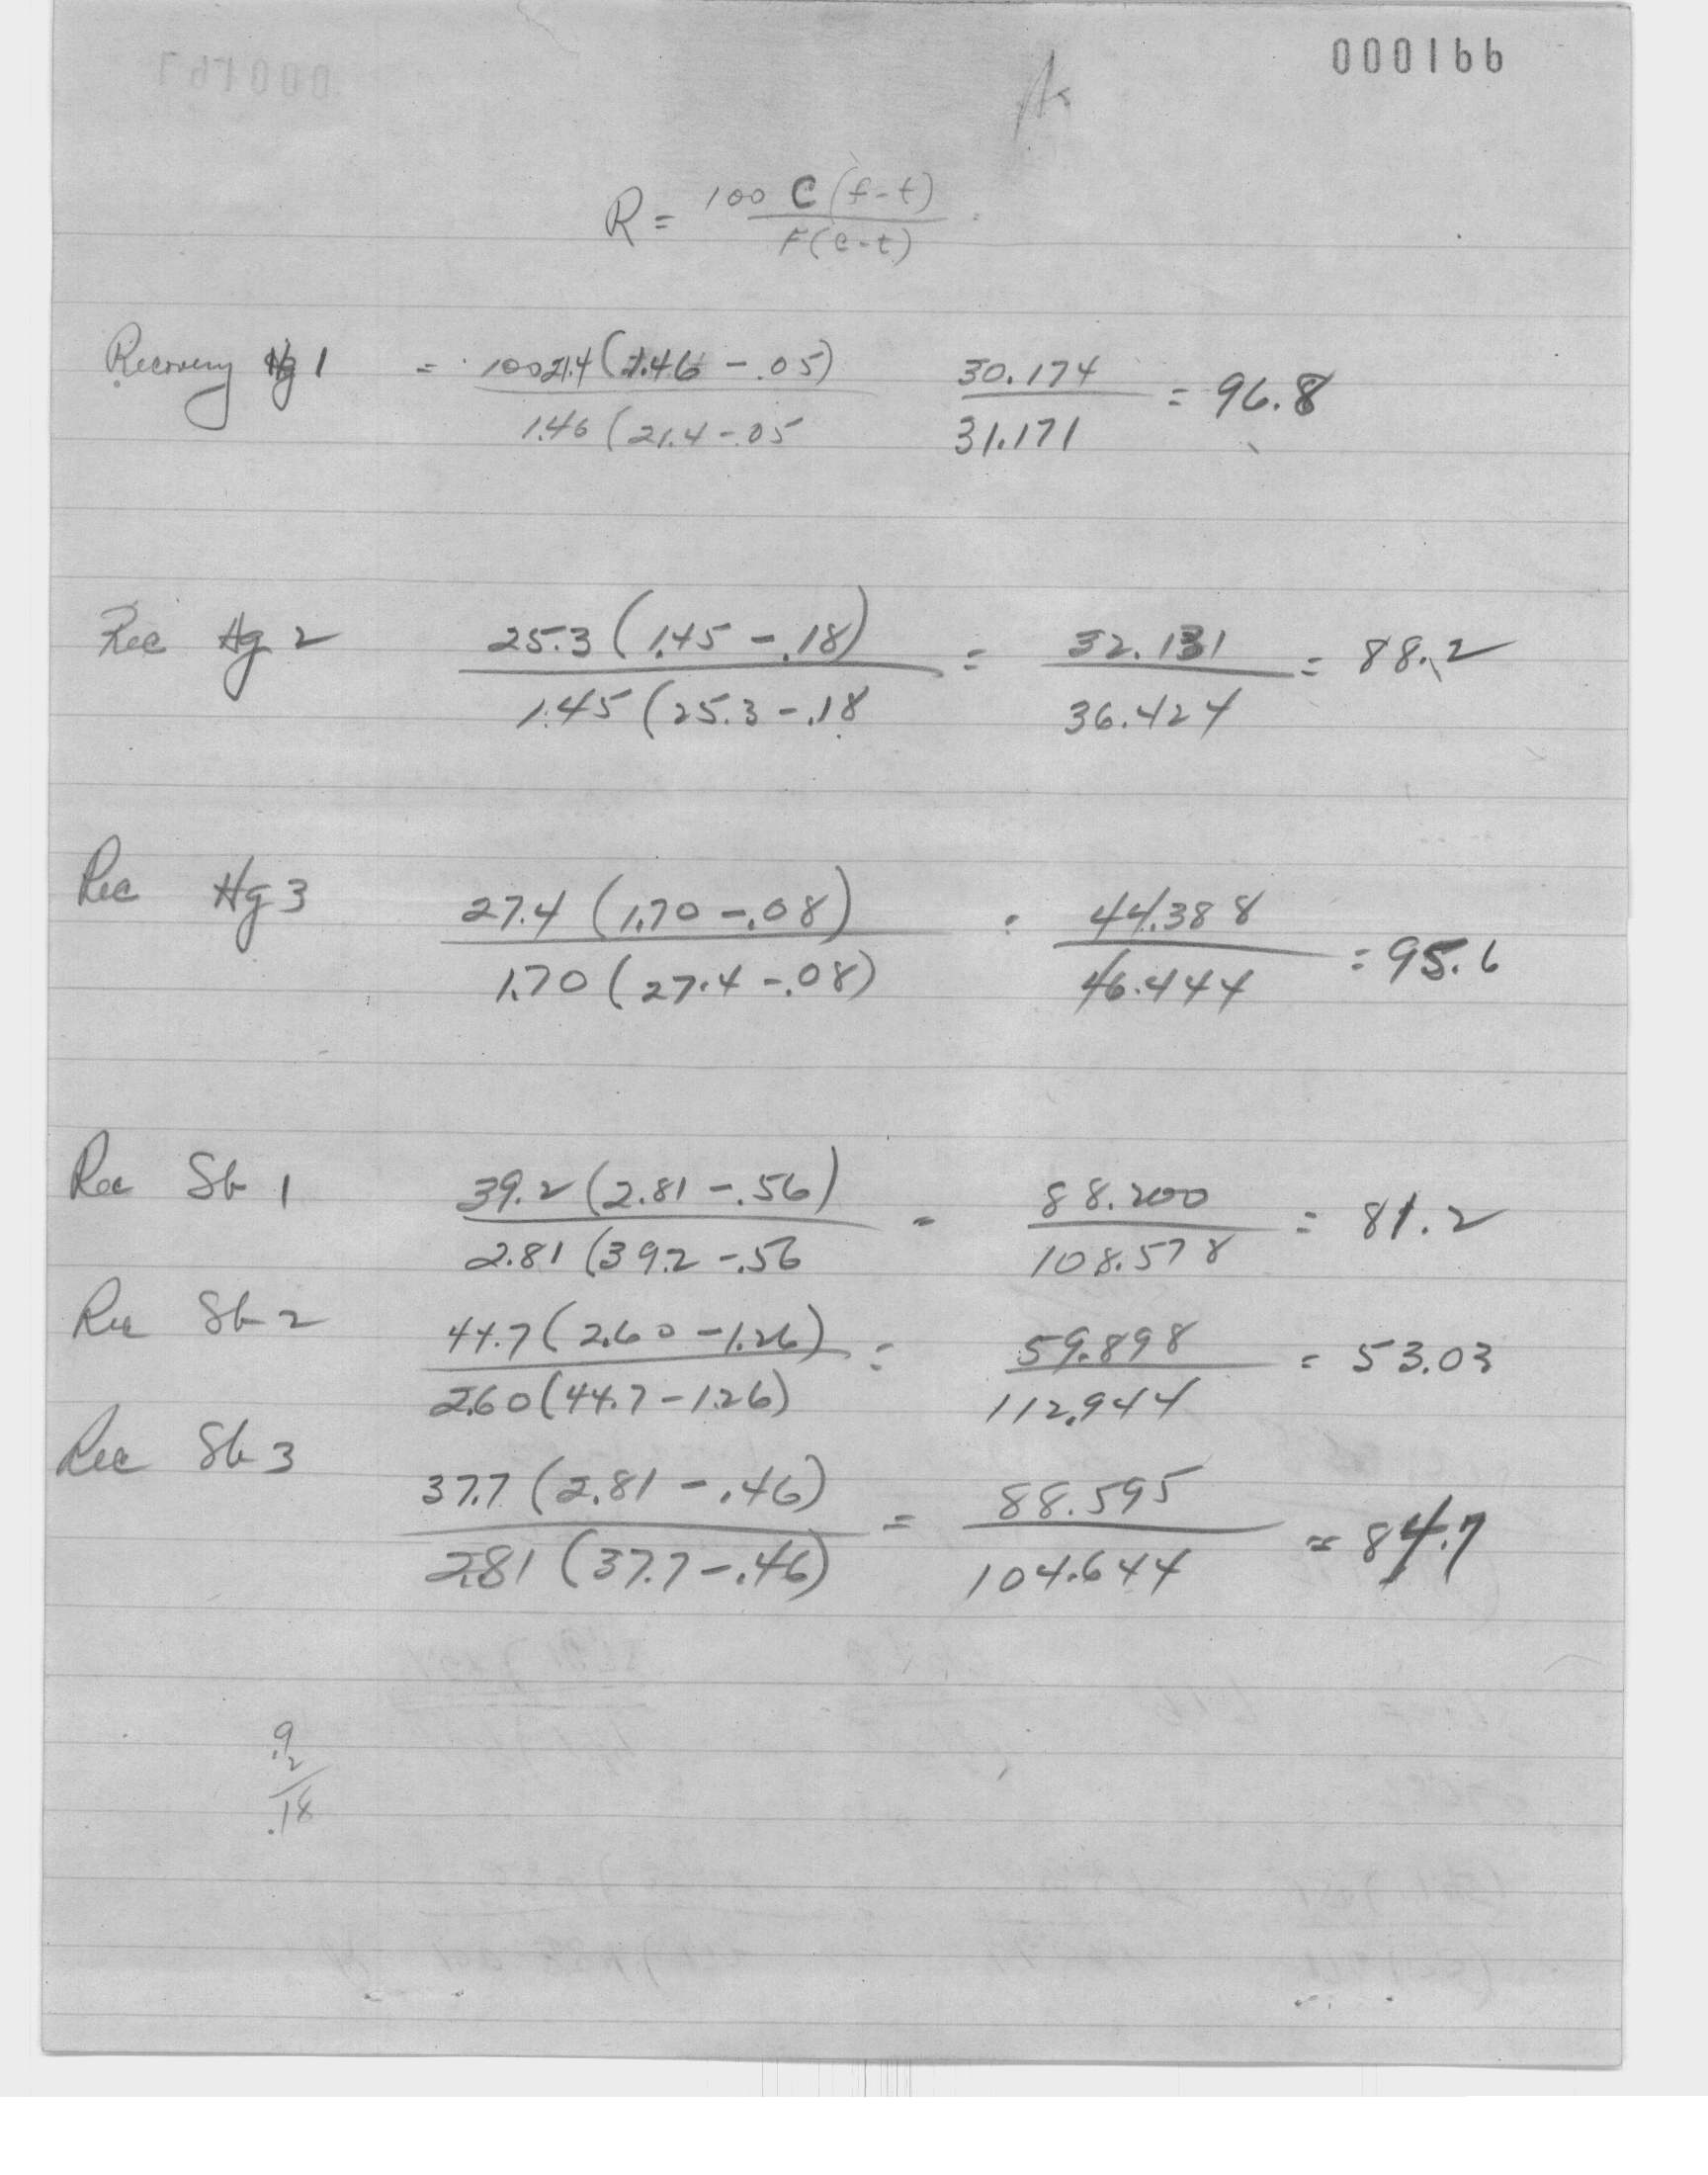 000166
R = 100 C (f-t)
F(c-t)
Recovery Hg 1 = 100 21.4 (1.46 - .05) 30.174 = 96.8
1.46 (21.4 - .05 31.171
Rec Hg 2 25.3 (1.45 - .18) = 32.131 = 88.2
1.45 (25.3 - .18 36.424
Rec Hg 3 27.4 (1.70 - .08) = 44.388 = 95.6
1.70 (27.4 - .08) 46.444
Rec Sb 1 39.2 (2.81 - .56) = 88.200 = 81.2
2.81 (39.2 - .56 108.578
Rec Sb 2 44.7 (2.60 - 1.26) = 59.898 = 53.03
2.60 (44.7 - 1.26) 112.944
Rec Sb 3 37.7 (2.81 - .46) = 88.595 = 84.7
2.81 (37.7 - .46) 104.644
.9
2
.18